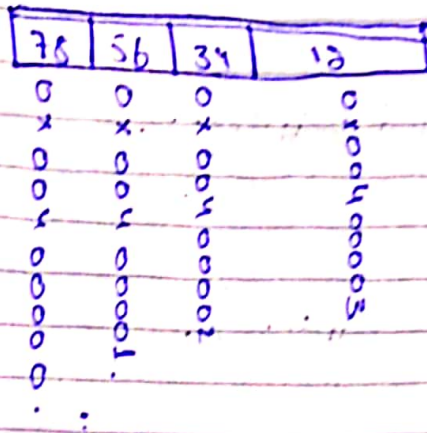 78 56 34 12
0x00400000
0x00400001
0x00400002
0x00400003